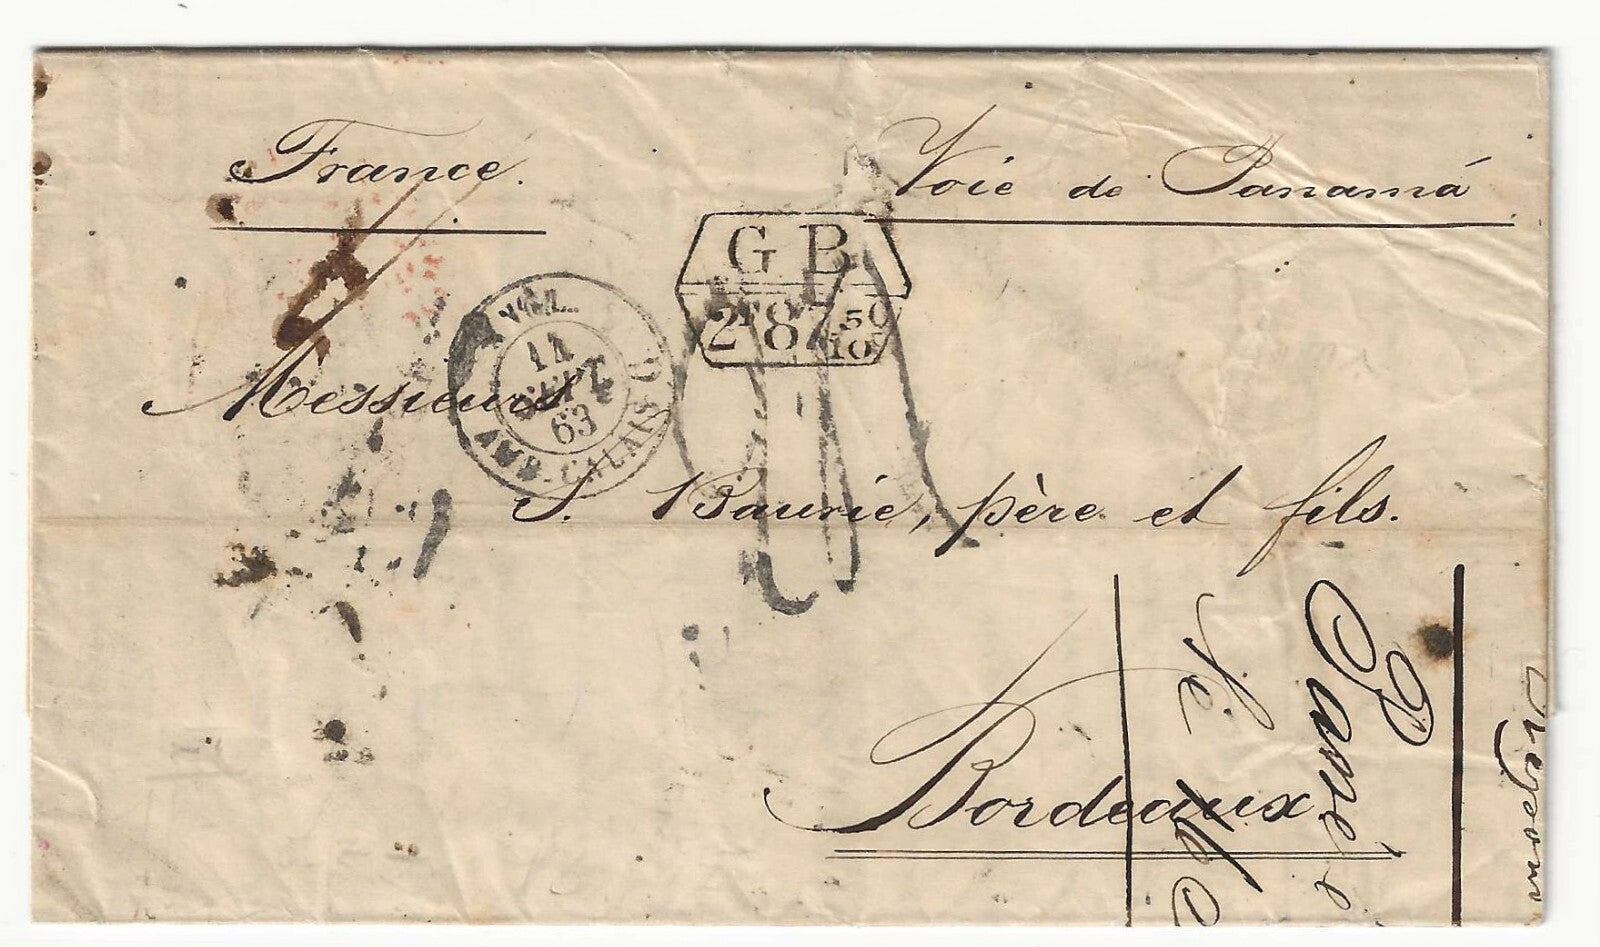 France.
Voie de Panamá
G B
2F87 50/10
ANGL.
14
SEPT
63
AMB. CALAIS D
Messieurs
S. Baurié, père et fils.
Bordeaux